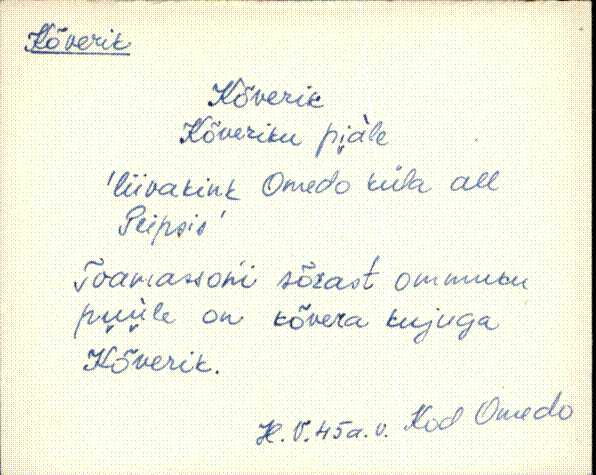 Kõverik
Kõverik
Kõveriku pi̬àle
'liivakink Omedo küla all
Peipsis'
sõrast ommuku
pu̬u̬le on kõvera kujuga
Kõverik.
H. V. 45 a. v. Kod Omedo